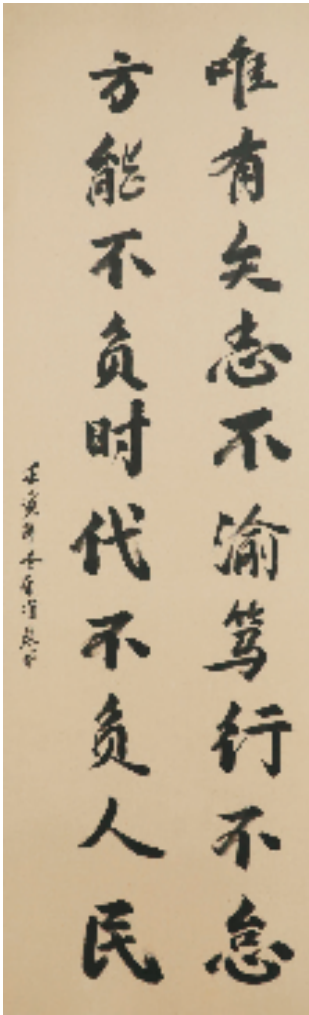 唯有矢志不渝笃行不怠
方能不负时代不负人民
壬寅年